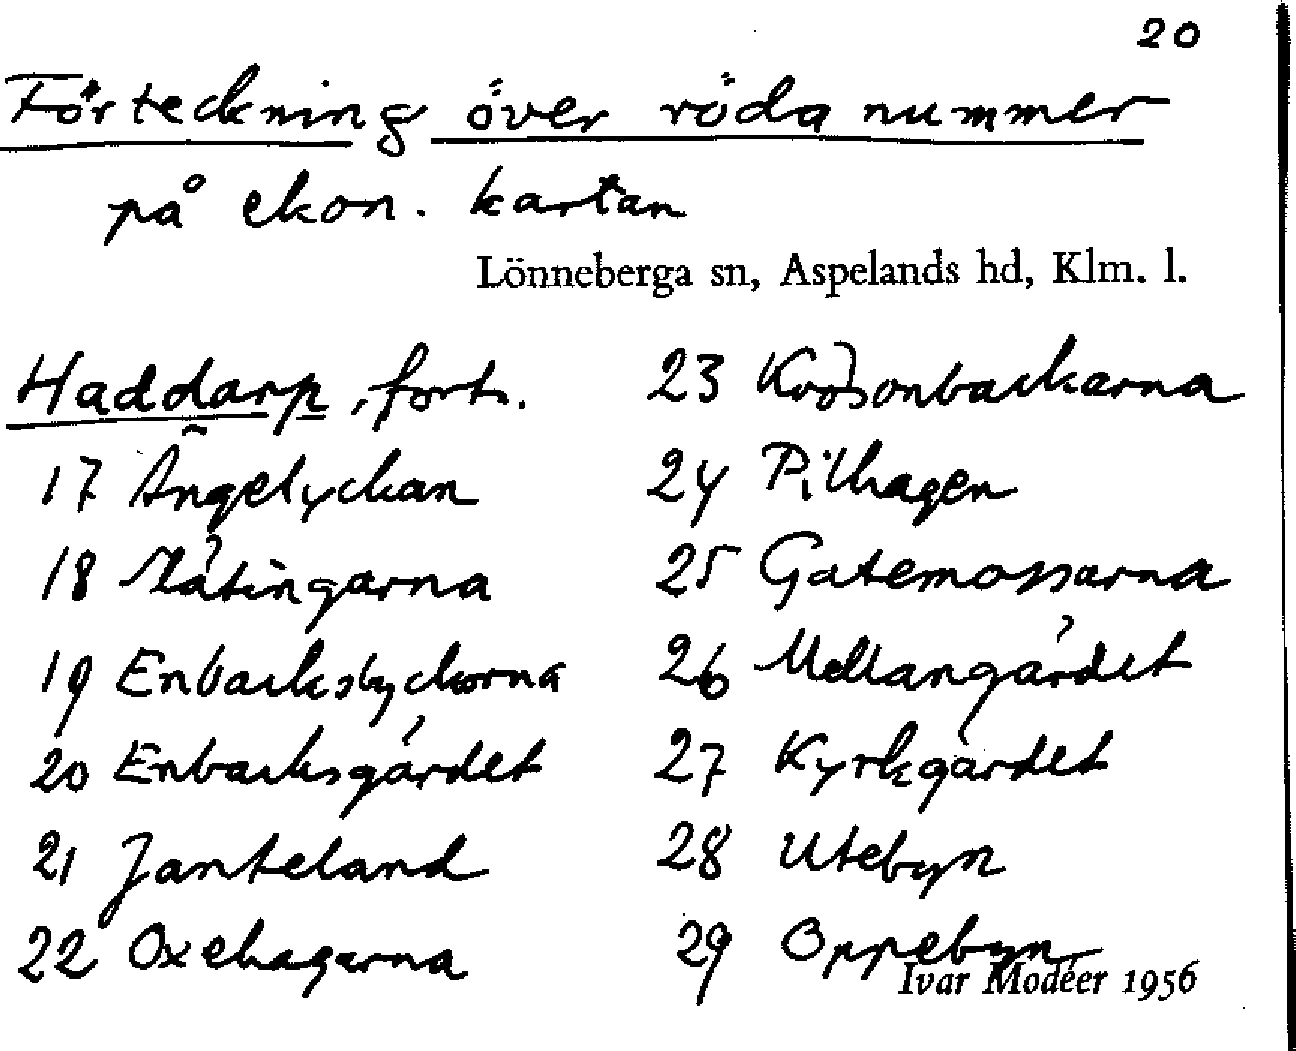 20
Förteckning över röda nummer
på ekon. kartan
Lönneberga sn, Aspelands hd, Klm. l.
Haddarp, forts.
17 Ängelyckan
18
19 Enbackslyckorna
20 Enbacksgärdet
21 Janteland
22 Oxehagarna
23
24 Pilhagen
25 Gatemossarna
26 Mellangärdet
27 Kyrkgärdet
28 Utebyn
29 Oppebyn
Ivar Modéer 1956